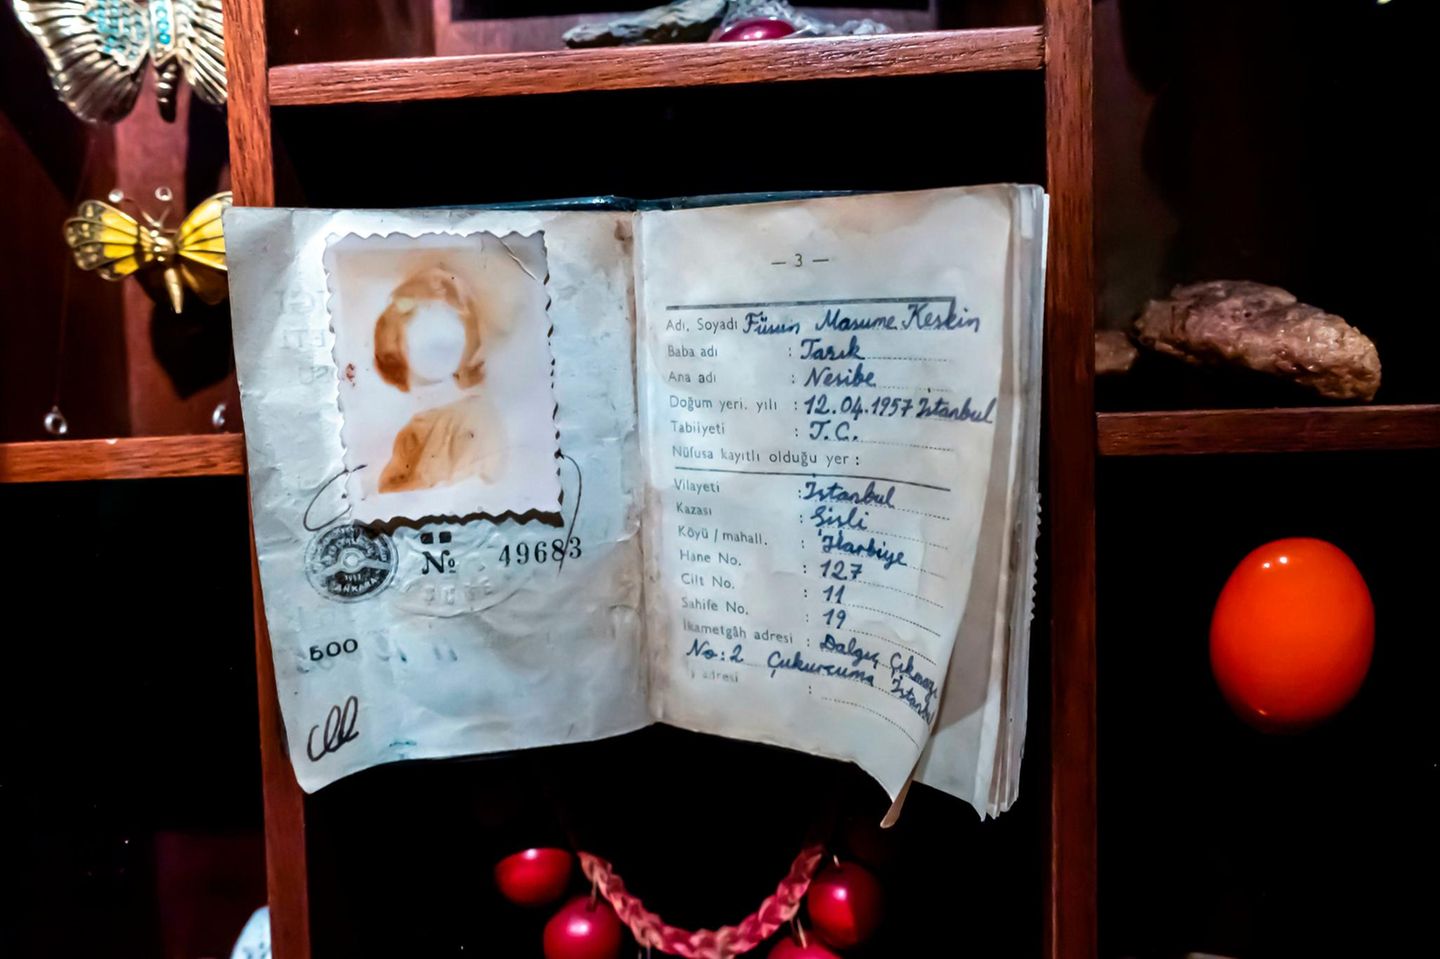 № 49683
500
— 3 —
Adı, Soyadı Füsun Masume Keskin
Baba adı : Tarık
Ana adı : Nesibe
Doğum yeri, yılı : 12.04.1957 Istanbul
Tabiiyeti : T.C.
Nüfusa kayıtlı olduğu yer :
Vilayeti : Istanbul
Kazası : Şişli
Köyü / mahall. : Harbiye
Hane No. : 127
Cilt No. : 11
Sahife No. : 19
İkametgâh adresi : Dalgıç Çıkmazı
No: 2 Çukurcuma İstanbul
İş adresi :